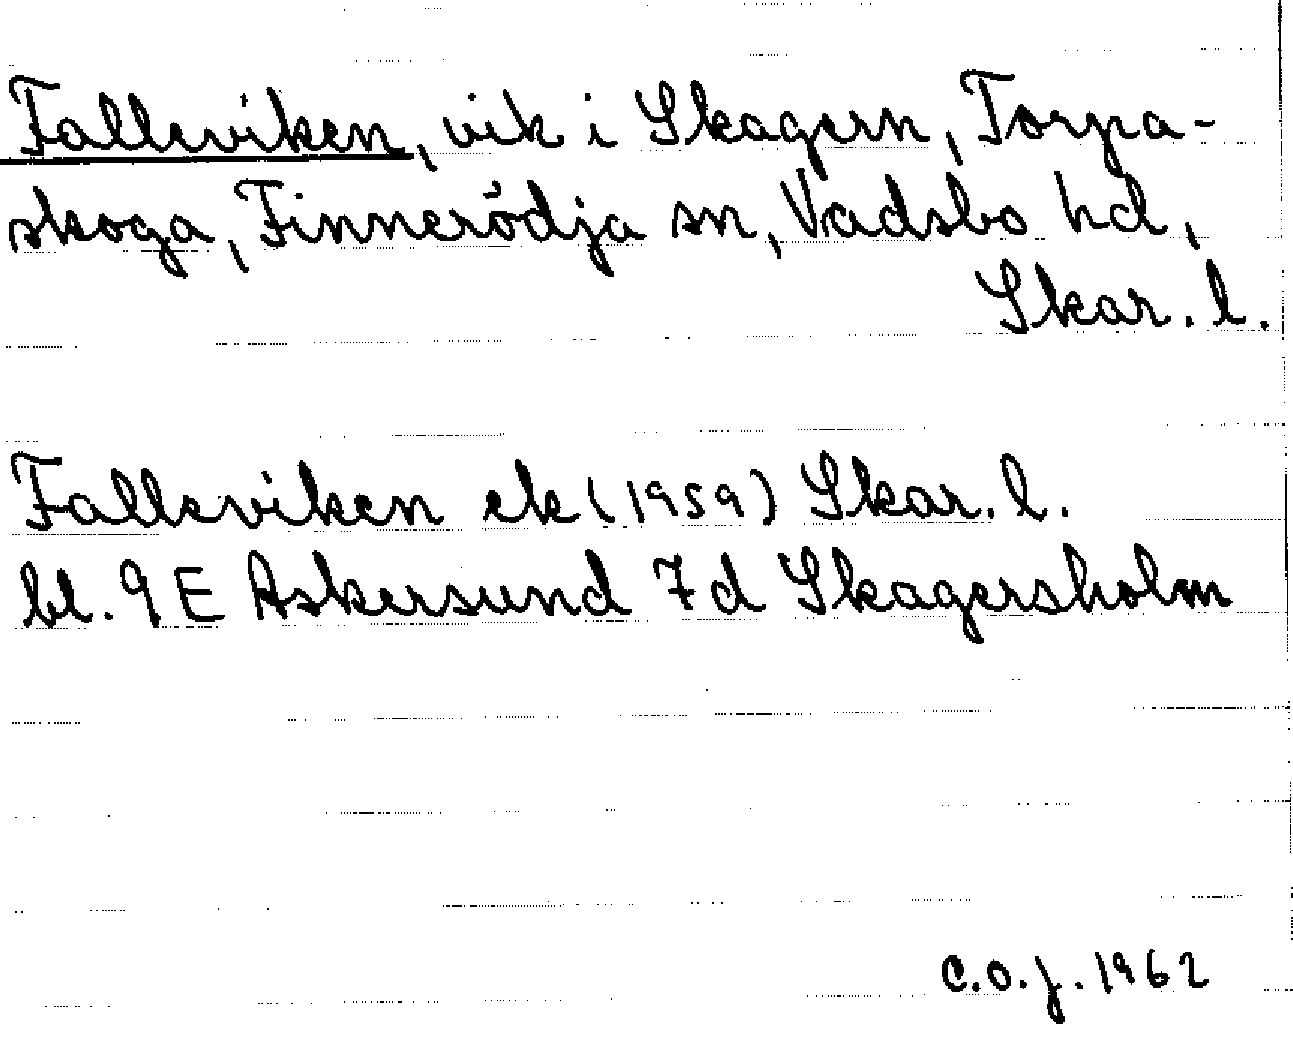 Falleviken, vik i Skagern, Torpa-
skoga, Finnerödja sn, Vadsbo hd,
Skar. l.
Falleviken ek (1959) Skar. l.
bl. 9E Askersund 7d Skagersholm
C.O.J. 1962